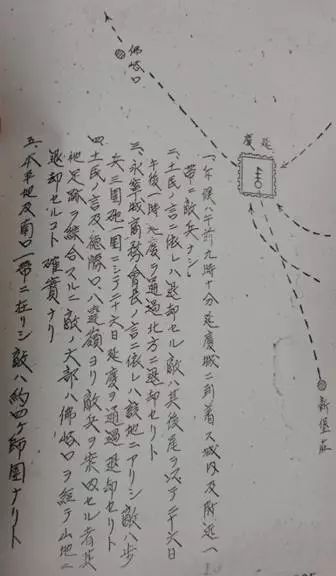 佛峪口
延慶
新保庄
一、斥候ハ午前九時十分延慶城ニ到着ス城内及附近一
帯ニ敵兵ナシ
二、土民ノ言ニ依レハ退却セル敵ハ其後尾ヲ以テ二十六日
午後一時延慶ヲ通過北方ニ退却セリト
三、永寧城商務會長ノ言ニ依レハ該地ニアリシ敵ハ步
兵三團砲一團ニシテ二十六日延慶ヲ通過退却セリト
四、土民ノ言及徳勝口、八達嶺ヨリ敵兵ヲ案内セル者其
他足跡ヲ綜合スルニ敵ノ大部ハ佛峪口ヲ経テ山地ニ
退却セルコト確實ナリ
五、本平地及南口一帯ニ在リシ敵ハ約四ヶ師團ナリト